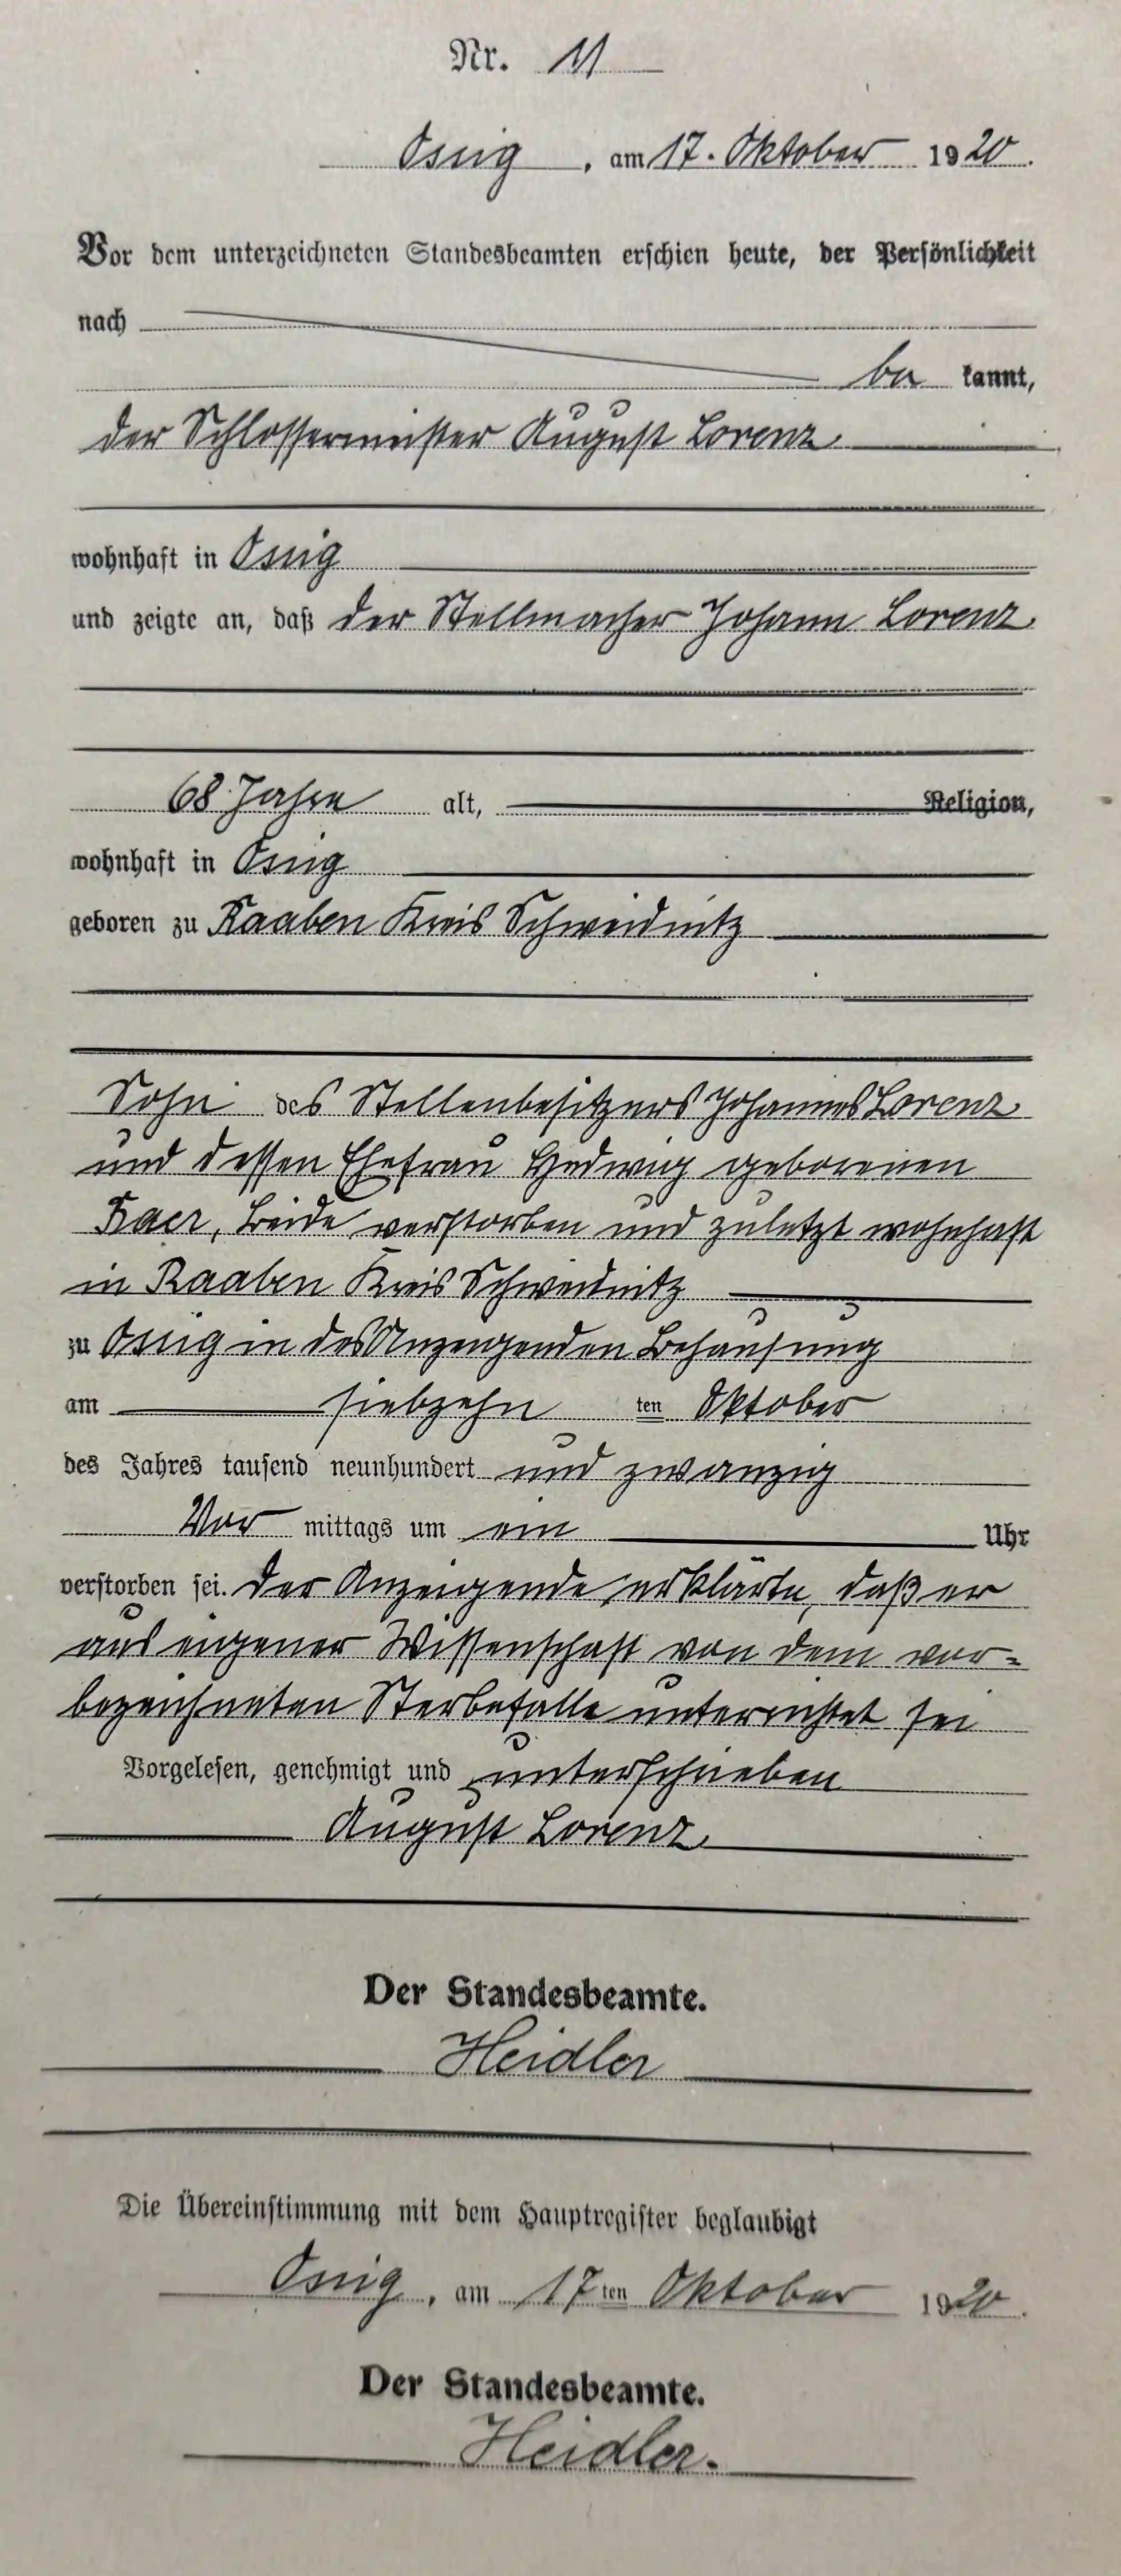 Nr. 11
Ossig, am 17. Oktober 1920.
Vor dem unterzeichneten Standesbeamten erschien heute, der Persönlichkeit
nach
be kannt,
der Schlossermeister August Lorenz
wohnhaft in Ossig
und zeigte an, daß der Stellmacher Johann Lorenz
68 Jahre alt, Religion,
wohnhaft in Ossig
geboren zu Raaben Kreis Schweidnitz
Sohn des Stellenbesitzers Johannes Lorenz
und dessen Ehefrau Hedwig geborenen
beide verstorben und zuletzt wohnhaft
in Raaben Kreis Schweidnitz
zu Ossig in des Anzeigenden Behausung
am siebzehn ten Oktober
des Jahres tausend neunhundert und zwanzig
Vor mittags um ein Uhr
verstorben sei. Der Anzeigende erklärte, daß er
aus eigener Wissenschaft von dem vor-
bezeichneten Sterbefalle unterrichtet sei
Vorgelesen, genehmigt und unterschrieben
August Lorenz
Der Standesbeamte.
Heidler
Die Übereinstimmung mit dem Hauptregister beglaubigt
Ossig, am 17ten Oktober 1920.
Der Standesbeamte.
Heidler.